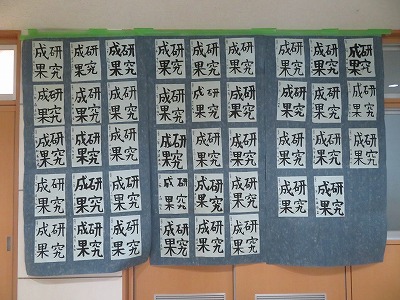 研究
成果
研究
成果
研究
成果
研究
成果
研究
成果
研究
成果
研究
成果
研究
成果
研究
成果
研究
成果
研究
成果
研究
成果
研究
成果
研究
成果
研究
成果
研究
成果
研究
成果
研究
成果
研究
成果
研究
成果
研究
成果
研究
成果
研究
成果
研究
成果
研究
成果
研究
成果
研究
成果
研究
成果
研究
成果
研究
成果
研究
成果
研究
成果
研究
成果
研究
成果
研究
成果
研究
成果
研究
成果
研究
成果
研究
成果
研究
成果
研究
成果